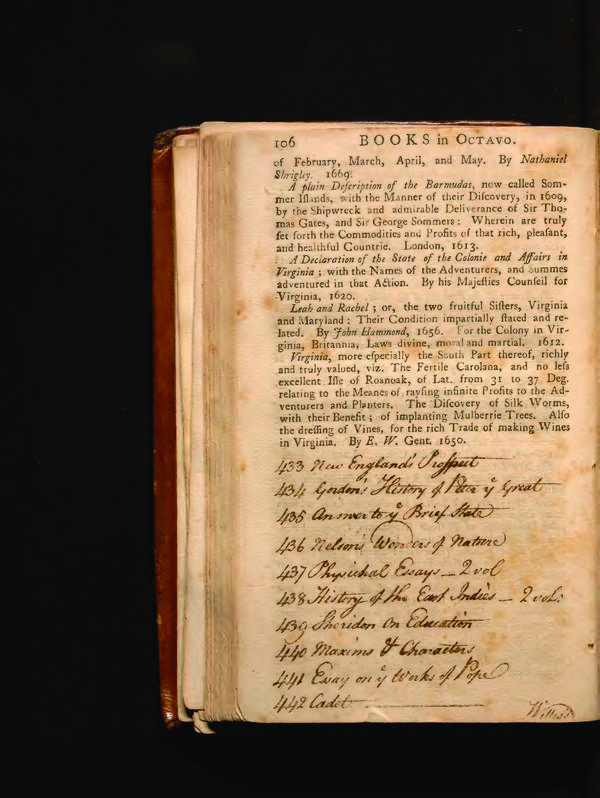 106 BOOKS in OCTAVO.
of February, March, April, and May. By Nathaniel
Shrigley. 1669.
A plain Deſcription of the Barmudas, now called Som-
mer Iſlands, with the Manner of their Diſcovery, in 1609,
by the Shipwreck and admirable Deliverance of Sir Tho-
mas Gates, and Sir George Sommers : Wherein are truly
ſet forth the Commodities and Profits of that rich, pleaſant,
and healthful Countrie. London, 1613.
A Declaration of the State of the Colonie and Affairs in
Virginia ; with the Names of the Adventurers, and Summes
adventured in that Action. By his Majeſties Counſeil for
Virginia, 1620.
Leah and Rachel ; or, the two fruitful Siſters, Virginia
and Maryland : Their Condition impartially ſtated and re-
lated. By John Hammond, 1656. For the Colony in Vir-
ginia, Britannia, Laws divine, moral and martial. 1612.
Virginia, more eſpecially the South Part thereof, richly
and truly valued, viz. The Fertile Carolana, and no leſs
excellent Iſle of Roanoak, of Lat. from 31 to 37 Deg.
relating to the Meanes of rayſing infinite Profits to the Ad-
venturers and Planters. The Diſcovery of Silk Worms,
with their Benefit ; of implanting Mulberrie Trees. Alſo
the dreſſing of Vines, for the rich Trade of making Wines
in Virginia. By E. W. Gent. 1650.
433 New England's Prospect
434 Gordon's History of Peter ye Great
435 Answer to ye Brief State
436 Nelson's Wonders of Nature
437 Physichal Essays — 2 vol
438 History of the East Indies — 2 vol:
439 Sheridon On Education
440 Maxims & Characters
441 Essay on ye Works of Pope
442 Cadet